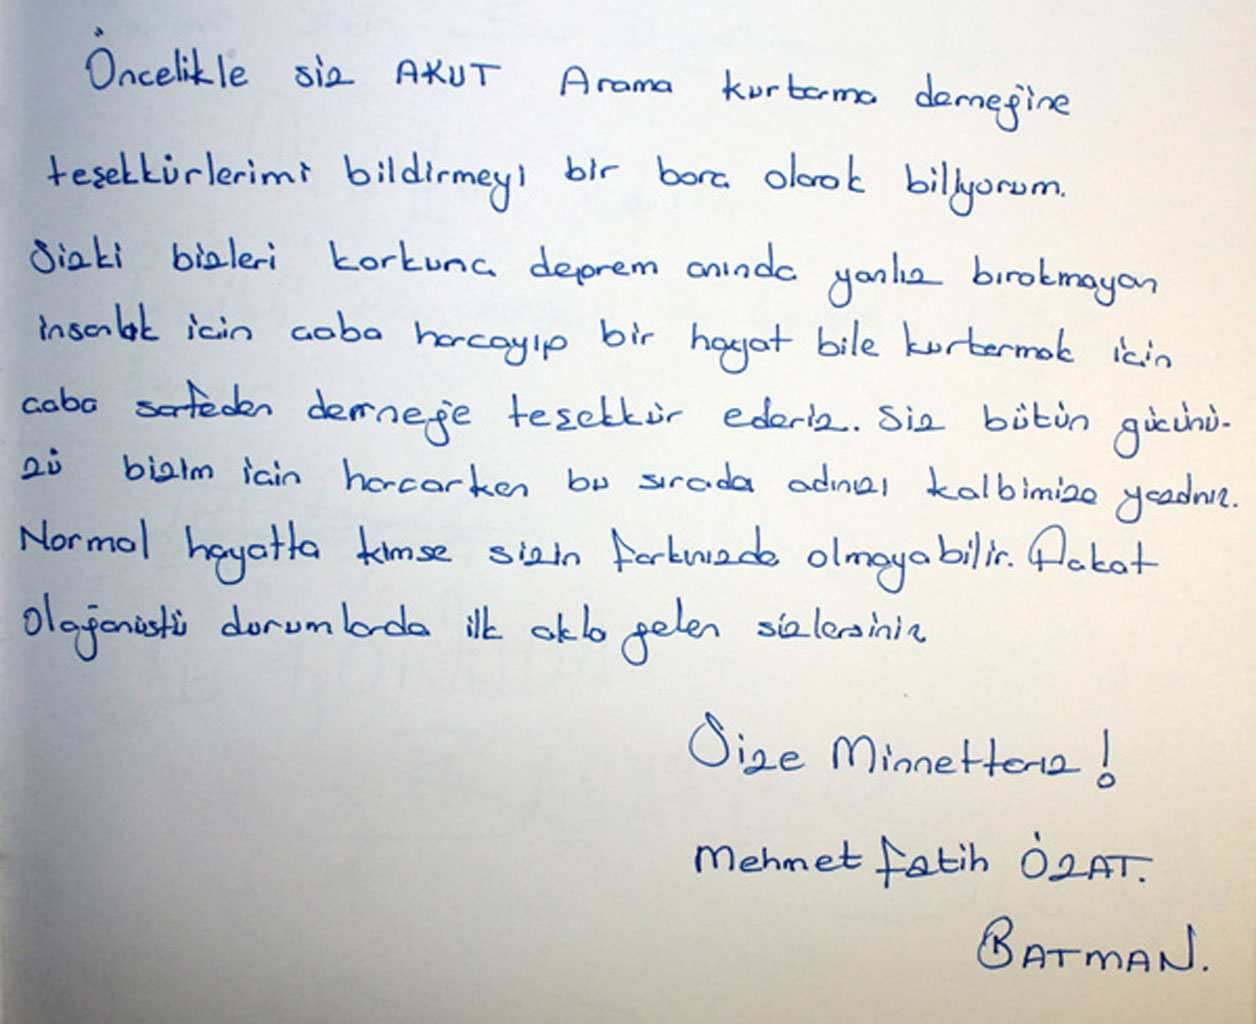 Öncelikle siz AKUT Arama kurtarma derneğine
teşekkürlerimi bildirmeyi bir borç olarak biliyorum.
Sizki bizleri korkunç deprem anında yanlız bırakmayan
insanlık için çaba harcayıp bir hayat bile kurtarmak için
çaba sarfeden derneğe teşekkür ederiz. Siz bütün gücünü-
zü bizim için harcarken bu sırada adınızı kalbimize yazdınız.
Normal hayatta kimse sizin farkınızda olmayabilir. Fakat
Olağanüstü durumlarda ilk akla gelen sizlersiniz
Size Minnettarız!
Mehmet Fatih ÖZAT.
BATMAN.